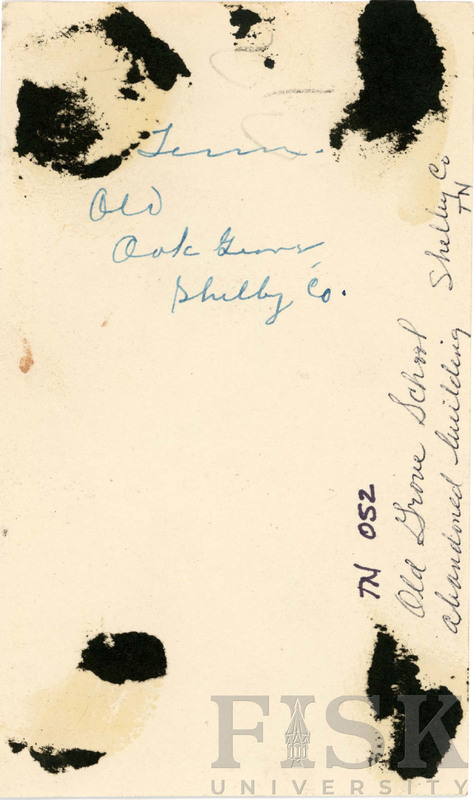 Tenn.
Old
Oak Grove,
Shelby Co.
TN 052
Old Grove School Shelby Co
abandoned building TN
FISK
UNIVERSITY